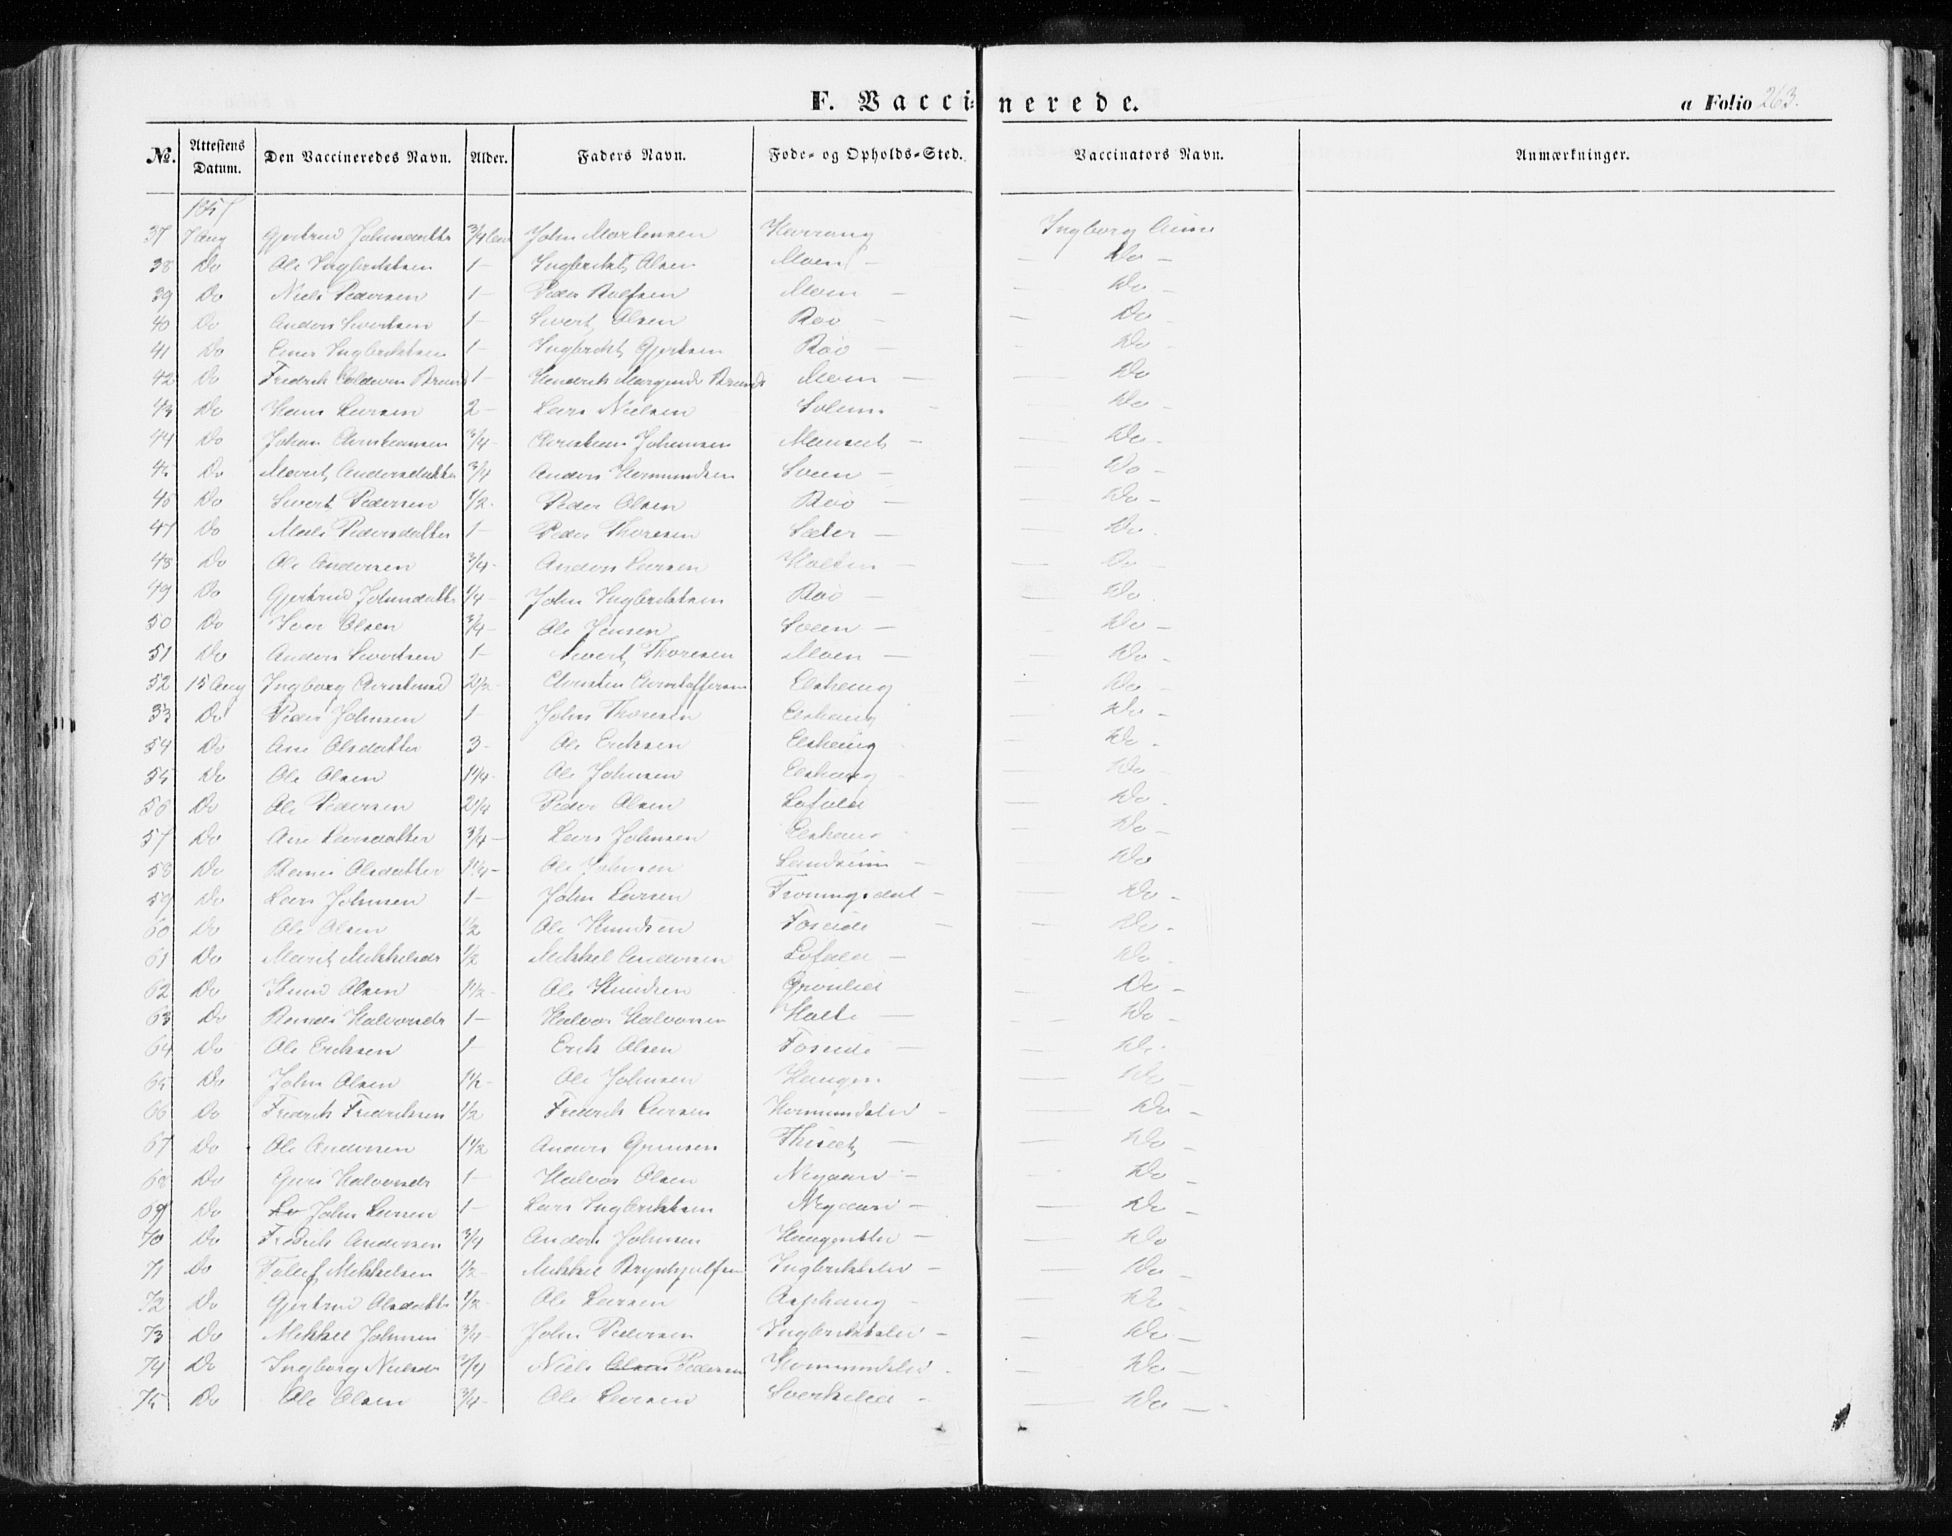 F. Vaccinerede. a Folio 263.
№. Attestens Datum. Den Vaccineredes Navn. Alder. Faders Navn. Føde- og Opholds-Sted. Vaccinators Navn. Anmærkninger.
1857
37 7 Aug Gjertrud Johnsdatter 3/4 John Mortensen Harrang Ingborg Aune
38 Do Ole Ingbriktsen 1 - Ingbrikt Olsen Moen - - Do -
39 Do Niels Pedersen 1 - Peder Rolfsen Moen - - Do -
40 Do Anders Sivertsen 1 - Sivert Olsen Röo - - Do -
41 Do Ingbriktsen 1 - Ingbrikt Gjertsen Röo - - Do -
42 Do Fredrik Brand 1 - Hendrik Brandt Moen - - Do
43 Do Hans Larsen 2 - Lars Nielsen Solem - - Do -
44 Do Johan Christiansen 3/4 - Christian Johansen - - Do -
45 Do Marit Andersdatter 3/4 Anders Hermundsen Soen - - Do -
46 Do Sivert Pedersen 1/2 - Peder Olsen Röo - - Do -
47 Do Pedersdatter 1 - Peder Thoresen Sæter - - Do -
48 Do Ole Andersen 3/4 - Anders Larsen Holten - - Do -
49 Do Gjertrud Johnsdatter 1/4 - John Ingbriktsen Röo - - Do
50 Do Iver Olsen 3/4 - Ole Jensen Soen - - Do -
51 Do Anders Sivertsen 1 - Sivert Thoresen Moen - - Do -
52 15 Aug Ingborg 2 1/2 - Christen Christoffersen Elshaug - Do -
53 Do Peder Johnsen 1 - John Thoresen Elshaug - Do -
54 Do Ane Olsdatter 3 - Ole Eriksen Elshaug - Do -
55 Do Ole Olsen 1 1/4 - Ole Johnsen Elshaug - Do
56 Do Ole Pedersen 2 1/4 Peder Olsen Lofald - Do -
57 Do Ane Larsdatter 3/4 - Lars Johnsen Elshaug - Do -
58 Do Olsdatter 1 1/4 - Ole Johnsen - - Do
59 Do Lars Johnsen 1 - John Larsen Troningsdal - - Do -
60 Do Ole Olsen 1/2 Ole Knudsen Foseide - - Do -
61 Do Marit Mikkelsdr 1/2 Mikkel Andersen Lofald - - Do -
62 Do Knud Olsen 1 1/2 - Ole Knudsen Grönlid - Do -
63 Do Halvorsdr 1 - Halvor Halvorsen Holte - - Do -
64 Do Ole Eriksen 1 - Erik Olsen Foseide - - Do -
65 Do John Olsen 1 1/2 - Ole Johnsen Haugen - Do -
66 Do Fredrik Fredriksen 1/2 Fredrik Larsen Hermundslid - - Do -
67 Do Ole Andersen 1 1/2 Anders - - Do -
68 Do Guri Halvorsdr 1 - Halvor Olsen Nygaard - - Do -
69 Do John Larsen 1 - Lars Ingbriktsen Nygaard - - Do -
70 Do Fredrik Andersen 3/4 Anders Johnsen - - Do
71 Do Tollef Mikkelsen 1/2 - Mikkel Brynhjulfsen Ingbriktslid - - Do -
72 Do Gjertrud Olsdatter 1/2 - Ole Larsen Asphaug - - Do -
73 Do Mikkel Johnsen 3/4 - John Pedersen Ingbriktslid - - Do -
74 Do Ingborg Nielsdr 3/4 Niels Olsen Pedersen Hermundslid - - Do -
75 Do Ole Olsen 3/4 - Ole Larsen Sverkslid - - Do -